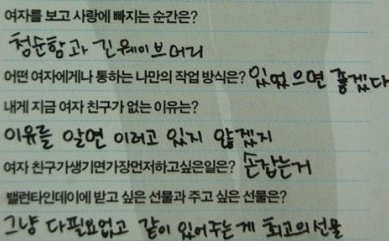 여자를 보고 사랑에 빠지는 순간은?
청순함과 긴웨이브머리
어떤 여자에게나 통하는 나만의 작업 방식은? 있었으면 좋겠다
내게 지금 여자 친구가 없는 이유는?
이유를 알면 이러고 있지 않겠지
여자 친구가생기면가장먼저하고싶은일은? 손잡는거
밸런타인데이에 받고 싶은 선물과 주고 싶은 선물은?
그냥 다필요없고 같이 있어주는게 최고의선물